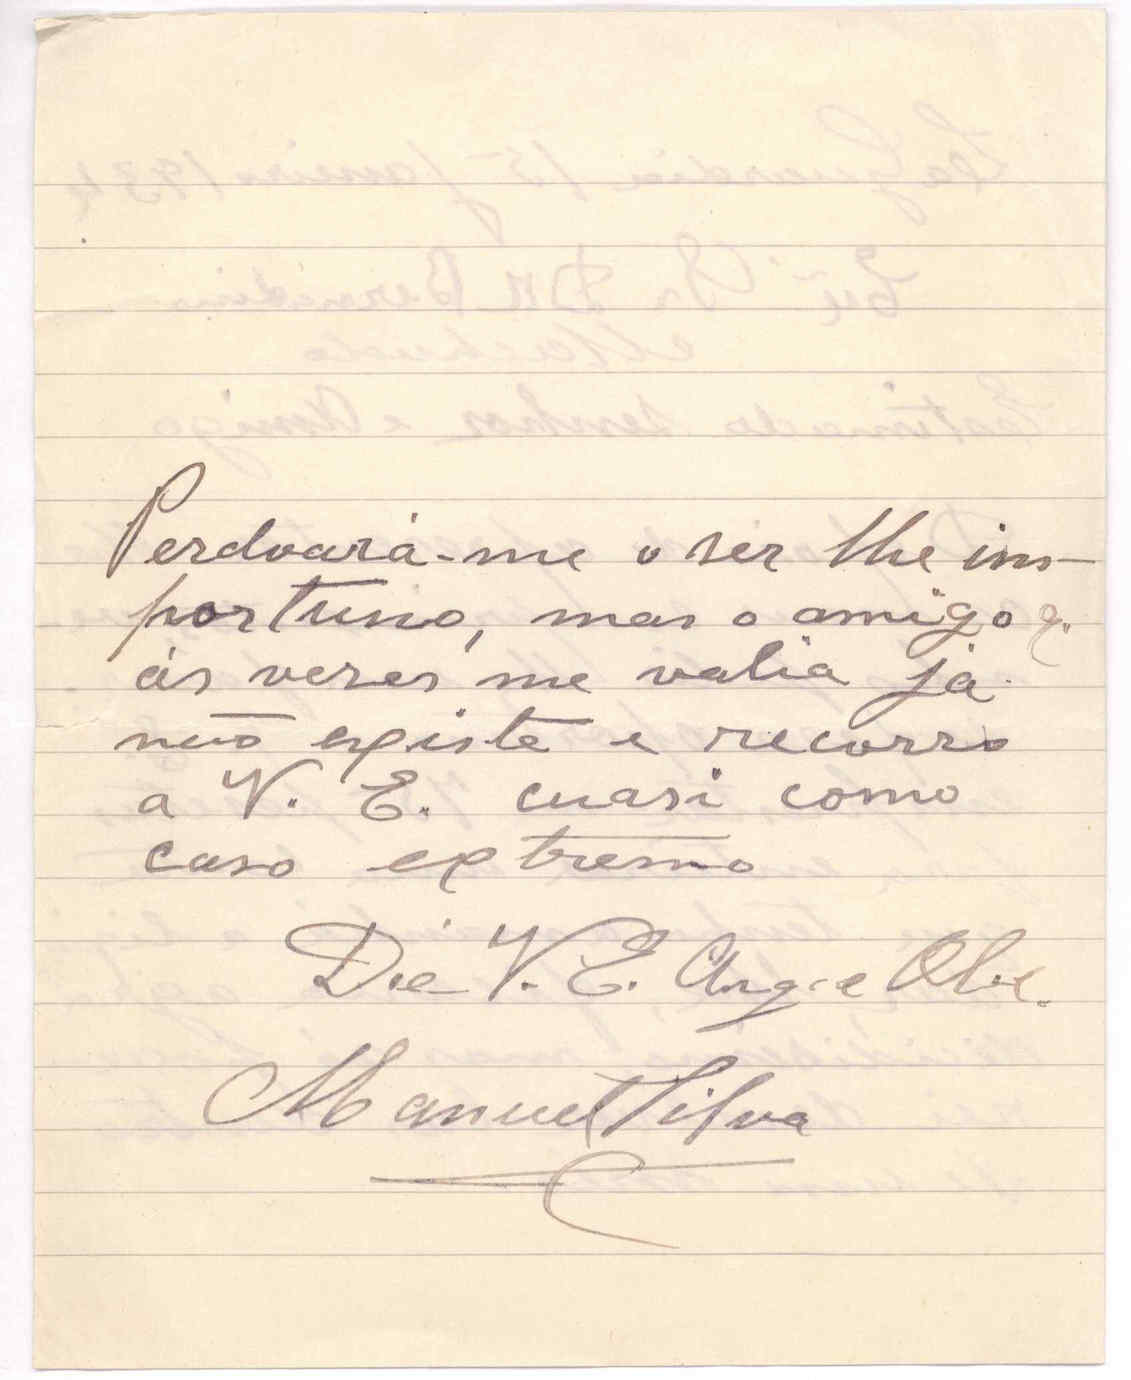 Perdoará-me o ser lhe im-
portuno, mas o amigo q.
ás vezes me valia já
não existe e recorro
a V. E. cuasi como
caso extremo
De V. E. Amg.e
Manuel Silva